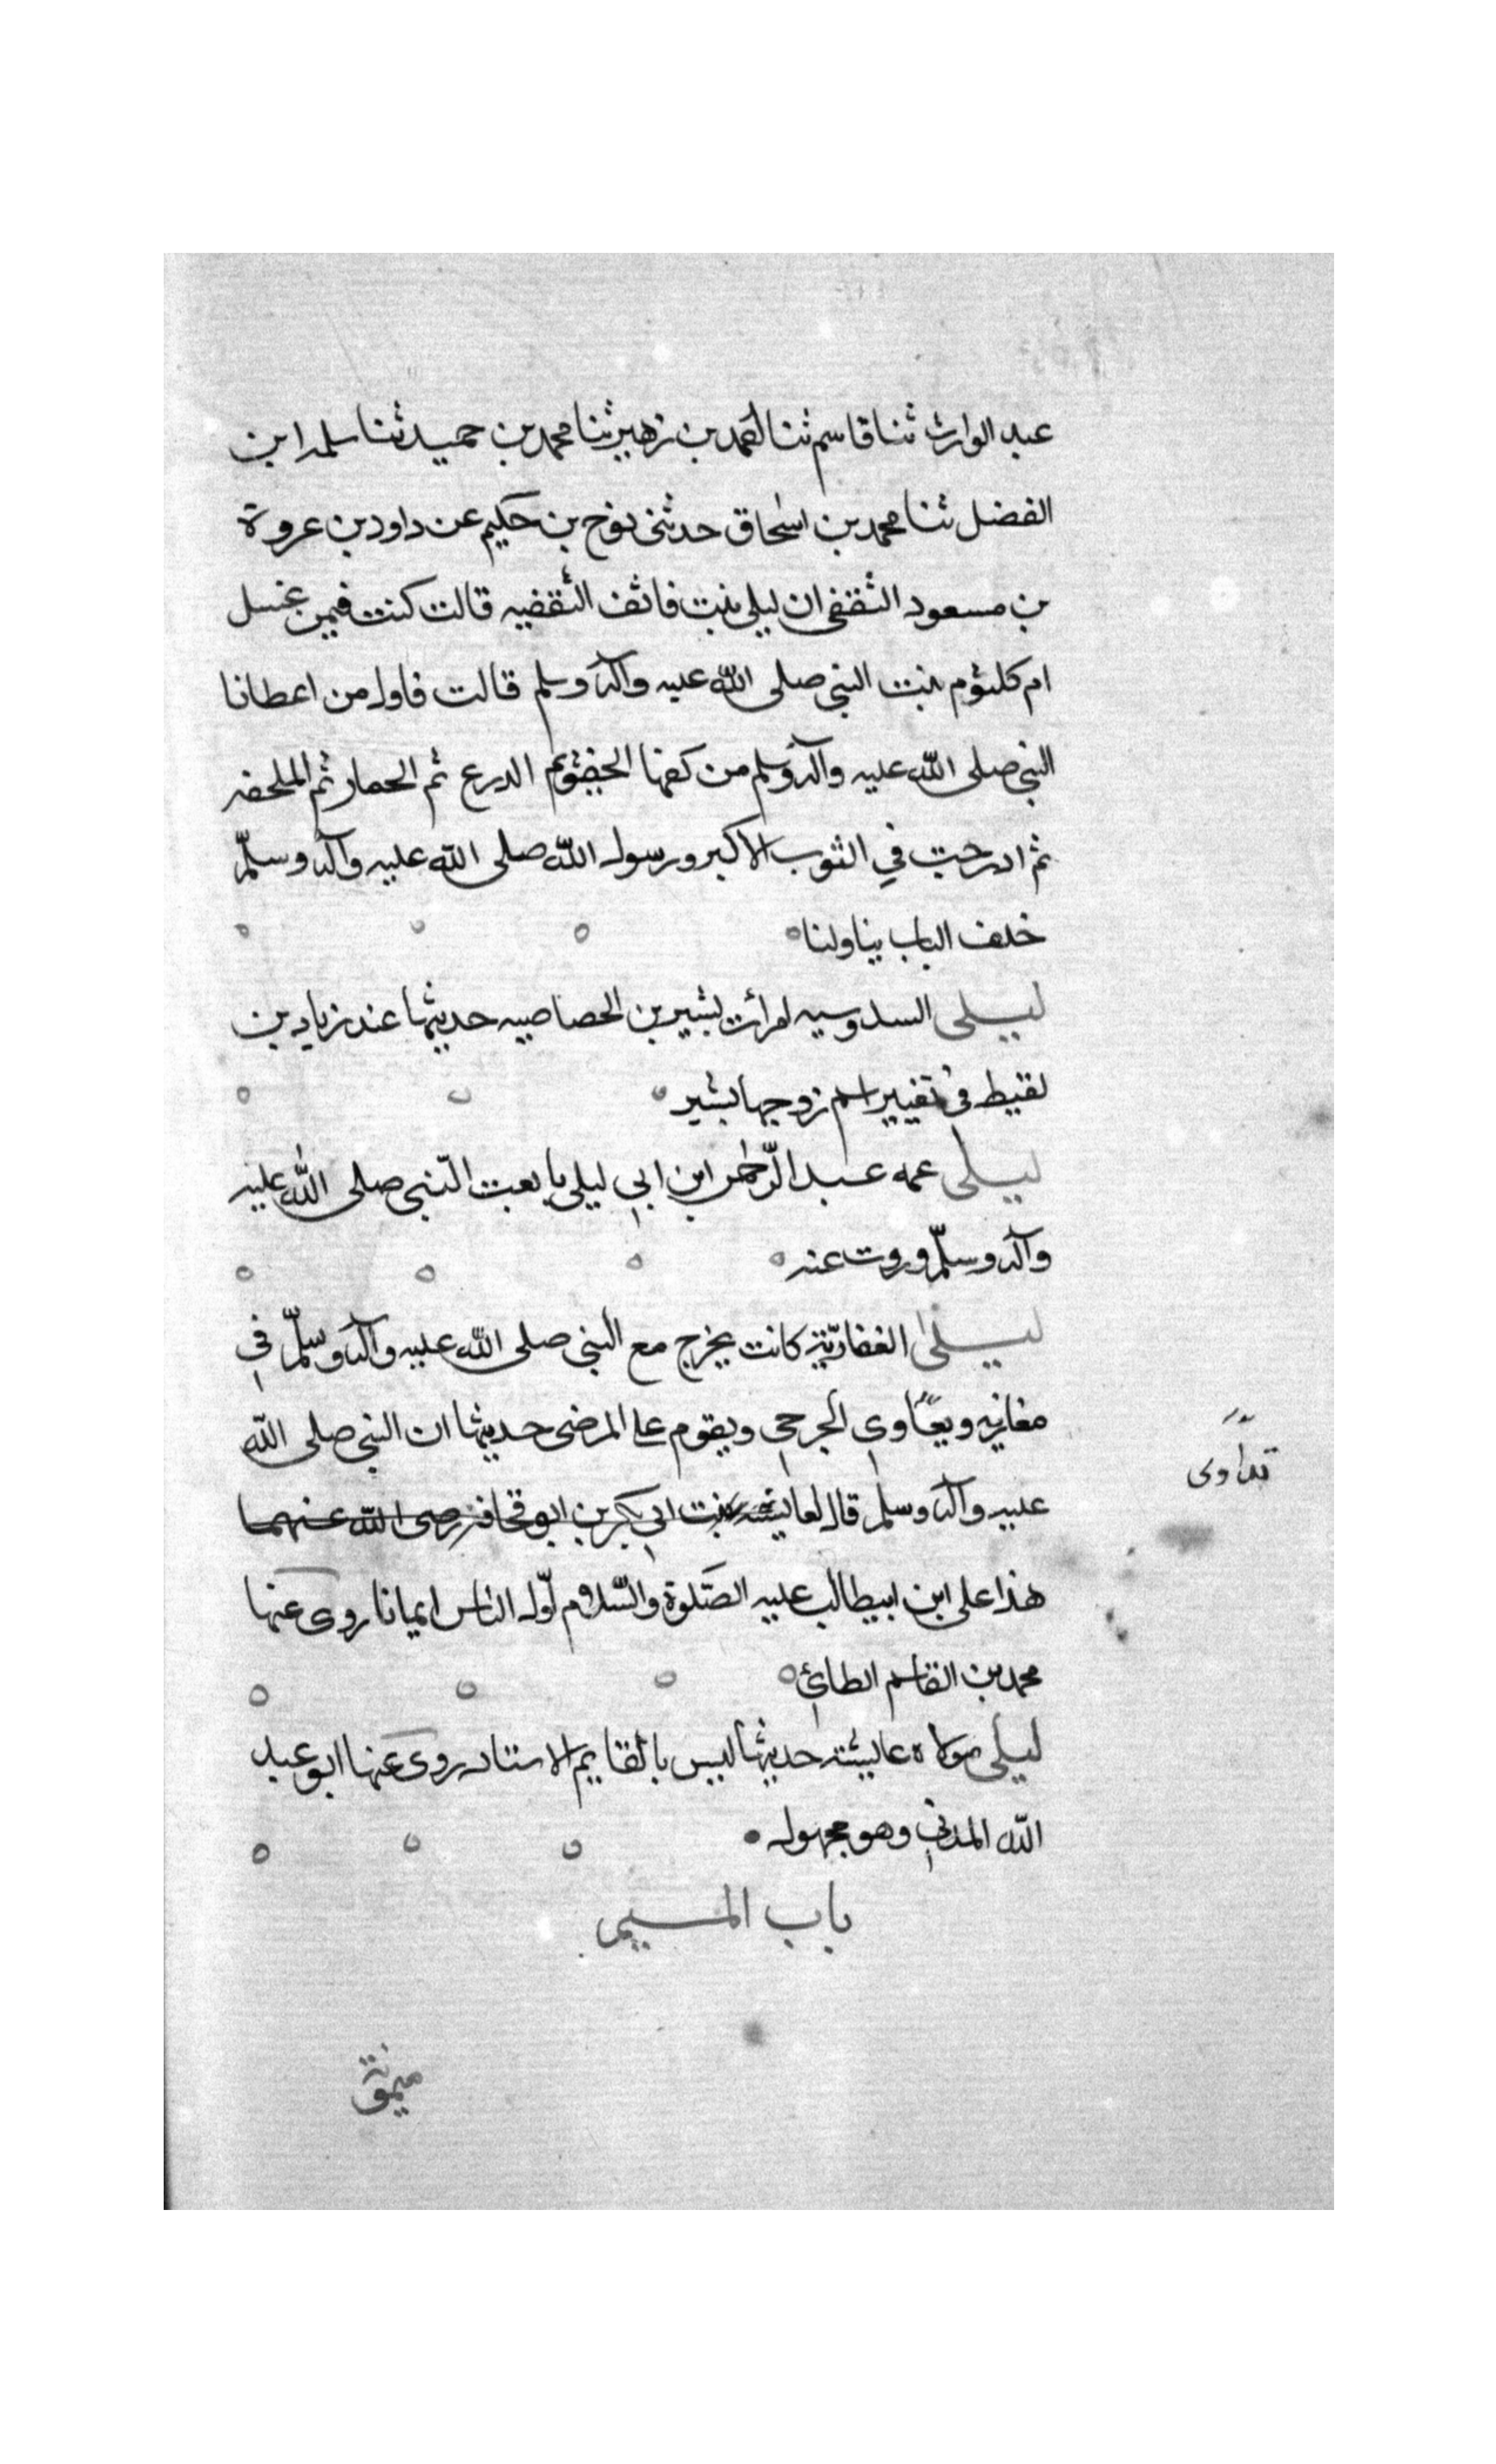 عبد الوارث ثنا قاسم ثنا احمد بن زهير ثنا محمد بن حميد ثنا سلمه ابن
الفضل ثنا محمد بن اسحاق حدثنى نوح بن حكيم عن داود بن عروة
بن مسعود الثقفى ان ليلى بنت قانف الثقفيه قالت كنت فيمن غسل
ام كلثوم بنت النبى صلى الله عليه وآله وسلم قالت فاول من اعطانا
النبى صلى الله عليه وآله وسلم من كفنها الدرع ثم الخمار ثم الملحفه
ثم ادرجت في الثوب الاكبر ورسول الله صلى الله عليه وآله وسلّم
خلف الباب يناولنا
ليلى السدوسيه امرأت بشير بن الخصاصيه حديثها عند زياد بن
لقيط فى تغيير اسم زوجها بشير
ليلى عمه عبد الرّحمن ابن ابي ليلى بايعت النّبى صلى الله عليه
وآله وسلّم وروت عنه
ليلى الغفاريّة كانت يخرج مع النبى صلى الله عليه وآله وسلّم في
مغازيه ويداوي الجرحى ويقوم على المرضى حديثها ان النبى صلى الله
تداوى
عليه وآله وسلم قال لعايشه بنت ابي بكر بن ابو قحافه رضى الله عنهما
هذا على ابن ابيطالب عليه الصّلوة والسّلام اوّل الناس ايمانا روى عنها
محمد بن القاسم الطائي
ليلى مولاة عايشة حديثها ليس بالقايم الاسناد روى عنها ابو عبد
الله المدني وهو مجهول
باب الميم
ميمونة